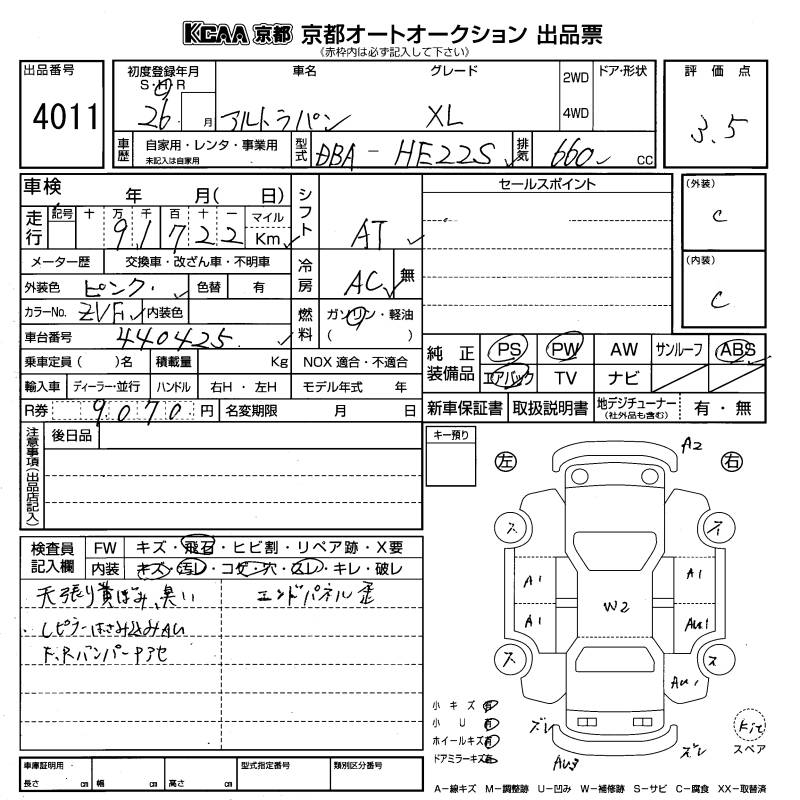 KCAA 京都 京都オートオークション 出品票
(赤枠内は必ず記入して下さい)
出品番号
4011
初度登録年月
S・H・R
26 月
車名
アルトラパン
グレード
XL
2WD
4WD
ドア・形状
評価点
3.5
車歴
自家用・レンタ・事業用
未記入は自家用
型式
DBA - HE22S
排気
660 cc
車検 年 月( 日)
走行
記号 十 万 千 百 十 一 マイル
9 1 7 2 2 Km
メーター歴 交換車・改ざん車・不明車
外装色 ピンク 色替 有
カラーNo. ZVF 内装色
車台番号 440425
シフト
AT
冷房
AC 無
燃料
ガソリン・軽油
( )
セールスポイント
(外装)
C
(内装)
C
乗車定員( )名 積載量 Kg NOX 適合・不適合
輸入車 ディーラー・並行 ハンドル 右H・左H モデル年式 年
R券 9070 円 名変期限 月 日
純正装備品
PS PW AW サンルーフ ABS
エアバック TV ナビ
新車保証書 取扱説明書 地デジチューナー(社外品も含む) 有・無
注意事項(出品店記入)
後日品
キー預り
左
右
A2
ス
ス
A1
A1
W2
A1
AU1
ス
ス
AU1
ズレ
AU3
ズレ
キ有
スペア
検査員記入欄
FW キズ・飛石・ヒビ割・リペア跡・X要
内装 キズ・汚レ・コゲ・穴・スレ・キレ・破レ
天張り黄ばみ、臭い
エンドパネル歪
Lピラーはさみ込みAU
F、Rバンパー
小キズ 有
小U 有
ホイールキズ 有
ドアミラーキズ 有
車庫証明用
長さ cm 幅 cm 高さ cm
型式指定番号
類別区分番号
A−線キズ M−調整跡 U−凹み W−補修跡 S−サビ C−腐食 XX−取替済